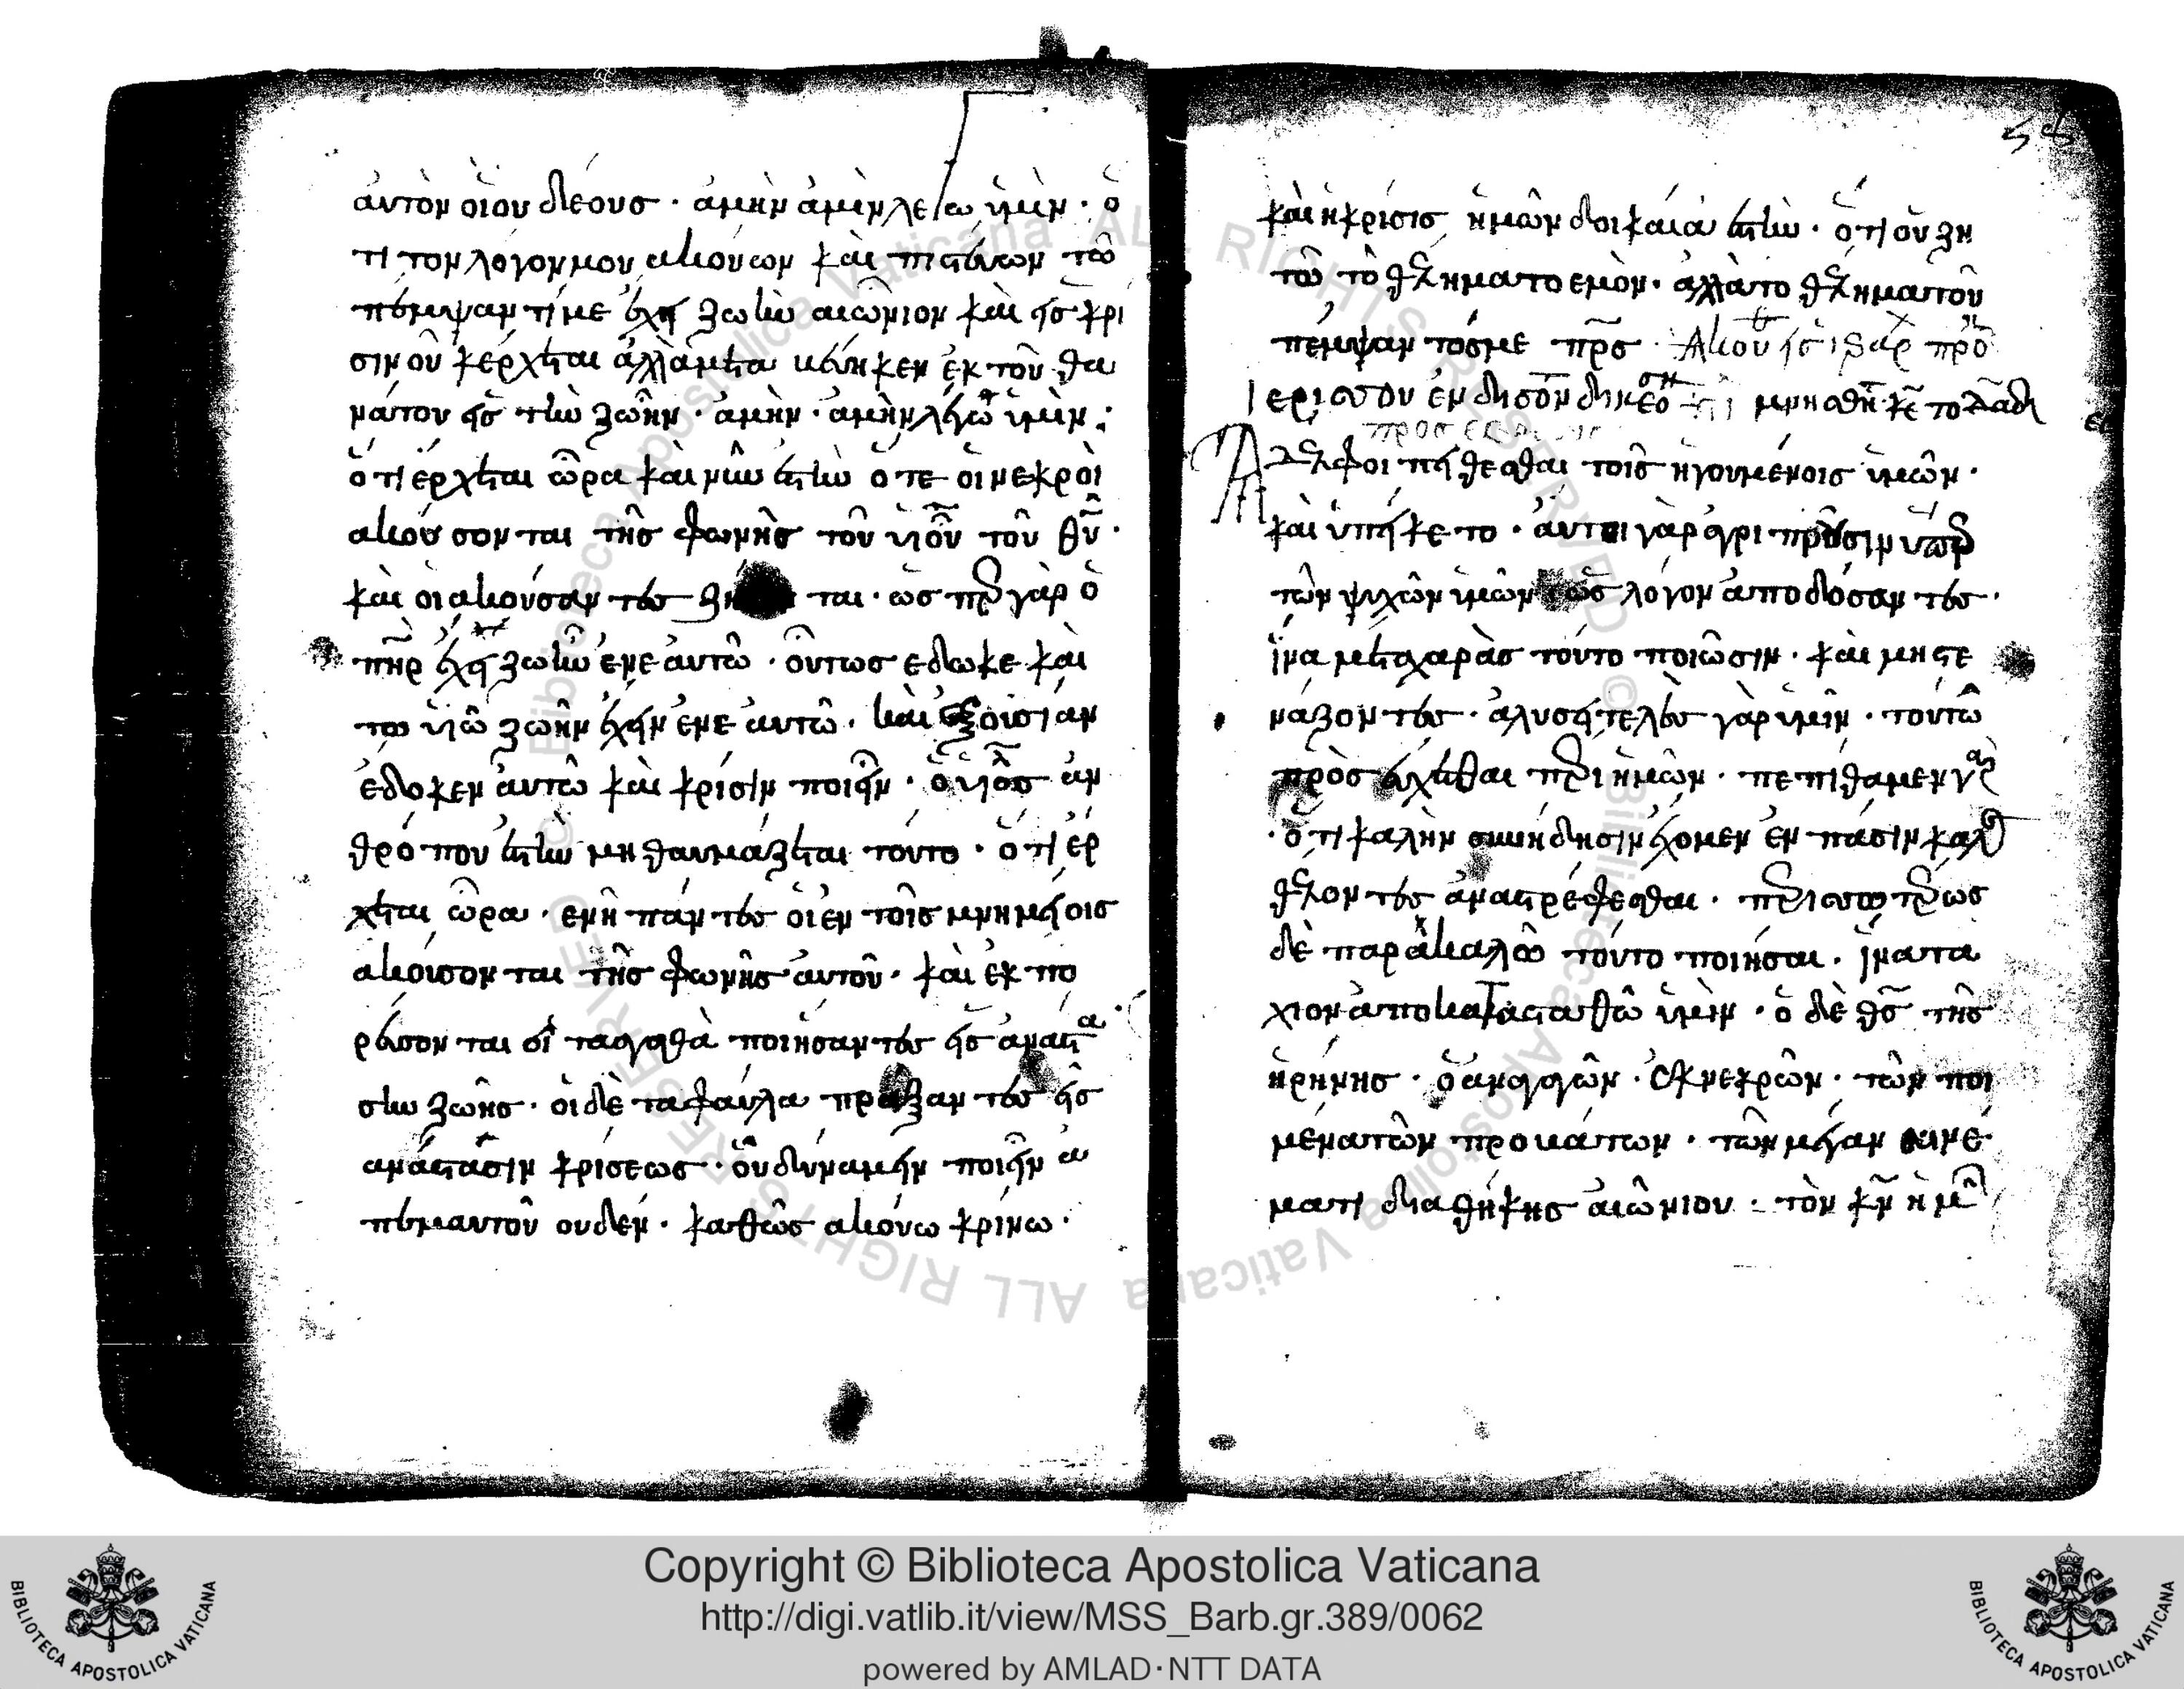 ἀυτὸν οἱου δέουσ · ἀμὴν ἀμὴν λέγω ὑμὶν · ὁ
τι τον λόγον μου ακουων καὶ πιστέυων τῶ
πέμψαν τί με ἔχη ζωὴν αιώνιον καὶ εἰσ κρι
σιν οὐκ έρχεται ἀλλὰ μεταβέβηκεν ἐκ τοῦ θα
νάτου εἰσ τὴν ζωὴν · ἀμὴν · ἀμὴν λέγω ὑμὶν :
ὁτι έρχεται ὥρα καὶ νῦν ἐστὶν ὁτε οἱ νεκροὶ
ακούσονται τῆσ φωνῆσ τοῦ υἱοῦ τοῦ θῦ ·
καὶ οι ακούσαντεσ ζη ται · ὡσπερ γὰρ ὁ
πῆρ ἔχη ζωὴν ἐνεἁυτῶ · οὕτωσ εδωκε καὶ
τω υἱῶ ζωὴν ἔχην ἐνεἁυτῶ · καὶ ἐξοισίαν
έδοκεν ἀυτῶ καὶ κρίσιν ποιεῖν · ὁ υἱὸσ ἀν
θρόπου ἐστὶν μη θαυμάζεται τούτο · ὁτι έρ
χεται ὥρα · ενῆ πάντεσ οἱ εν τοῖσ μνημείοισ
ακούσονται τῆσ φωνῆσ ἀυτοῦ · καὶ ἐκπο
ρέυσονται οἱ ταἀγαθὰ ποιήσαντεσ εἰσ ανάστα
σιν ζωῆσ · οἱ δὲ ταφαύλα πράξαντεσ εἰσ
ανάστασιν κρίσεωσ · οὐ δύναμαι ποιεῖν α
πέμαυτοῦ ουδὲν · καθῶσ ακούω κρίνω ·
καὶ η κρίσισ ημῶν δοικαία ἐστὶν · ὁτι οὐ ζη
τῶ τὸ θέλημα το εμὸν · ἀλλὰ το θέλημα τοῦ
πέμψαντόσ με πρσ
Αδελφοι πείθεσθαι τοῖσ ηγουμένοισ ὑμῶν ·
καὶ ὑπήκετο · ἀυτοι γὰρ αγριπνοῦσιν ὑπὲρ
τῶν ψυχῶν ὑμῶν ὡσ λόγον ἀποδόσοντεσ ·
ἵνα μεταχαρὰσ τούτο ποιῶσιν · καὶ μη στε
νάζοντεσ · ἀλυσητελὲσ γὰρ ὑμὶν · τούτῶ
πρὸσέυχεσθαι περι ἡμῶν · πεπίθαμεν γὰρ
· ὁτι καλὴν συνήδησιν έχομεν ἐν πάσιν καλῶσ
θέλοντεσ ἀναστρέφεσθαι · περισσωτέρωσ
δὲ παρακαλῶ τούτο ποιήσαι · ἵνα τα
χιον ἀποκαταστασθῶ ὑμὶν · ὁ δὲ θσ τῆσ
ηρήνησ · ὁ αναγαγὼν · ἐκνεκρῶν · τὼν ποι
μένα τῶν προβάτων · τῶν μέγαν ενε
ματι διαθήκησ αιῶνιου · τὸν κν ἡμῶν
Copyright © Biblioteca Apostolica Vaticana
http://digi.vatlib.it/view/MSS_Barb.gr.389/0062
powered by AMLAD·NTT DATA
BIBLIOTECA APOSTOLICA VATICANA
BIBLIOTECA APOSTOLICA VATICANA